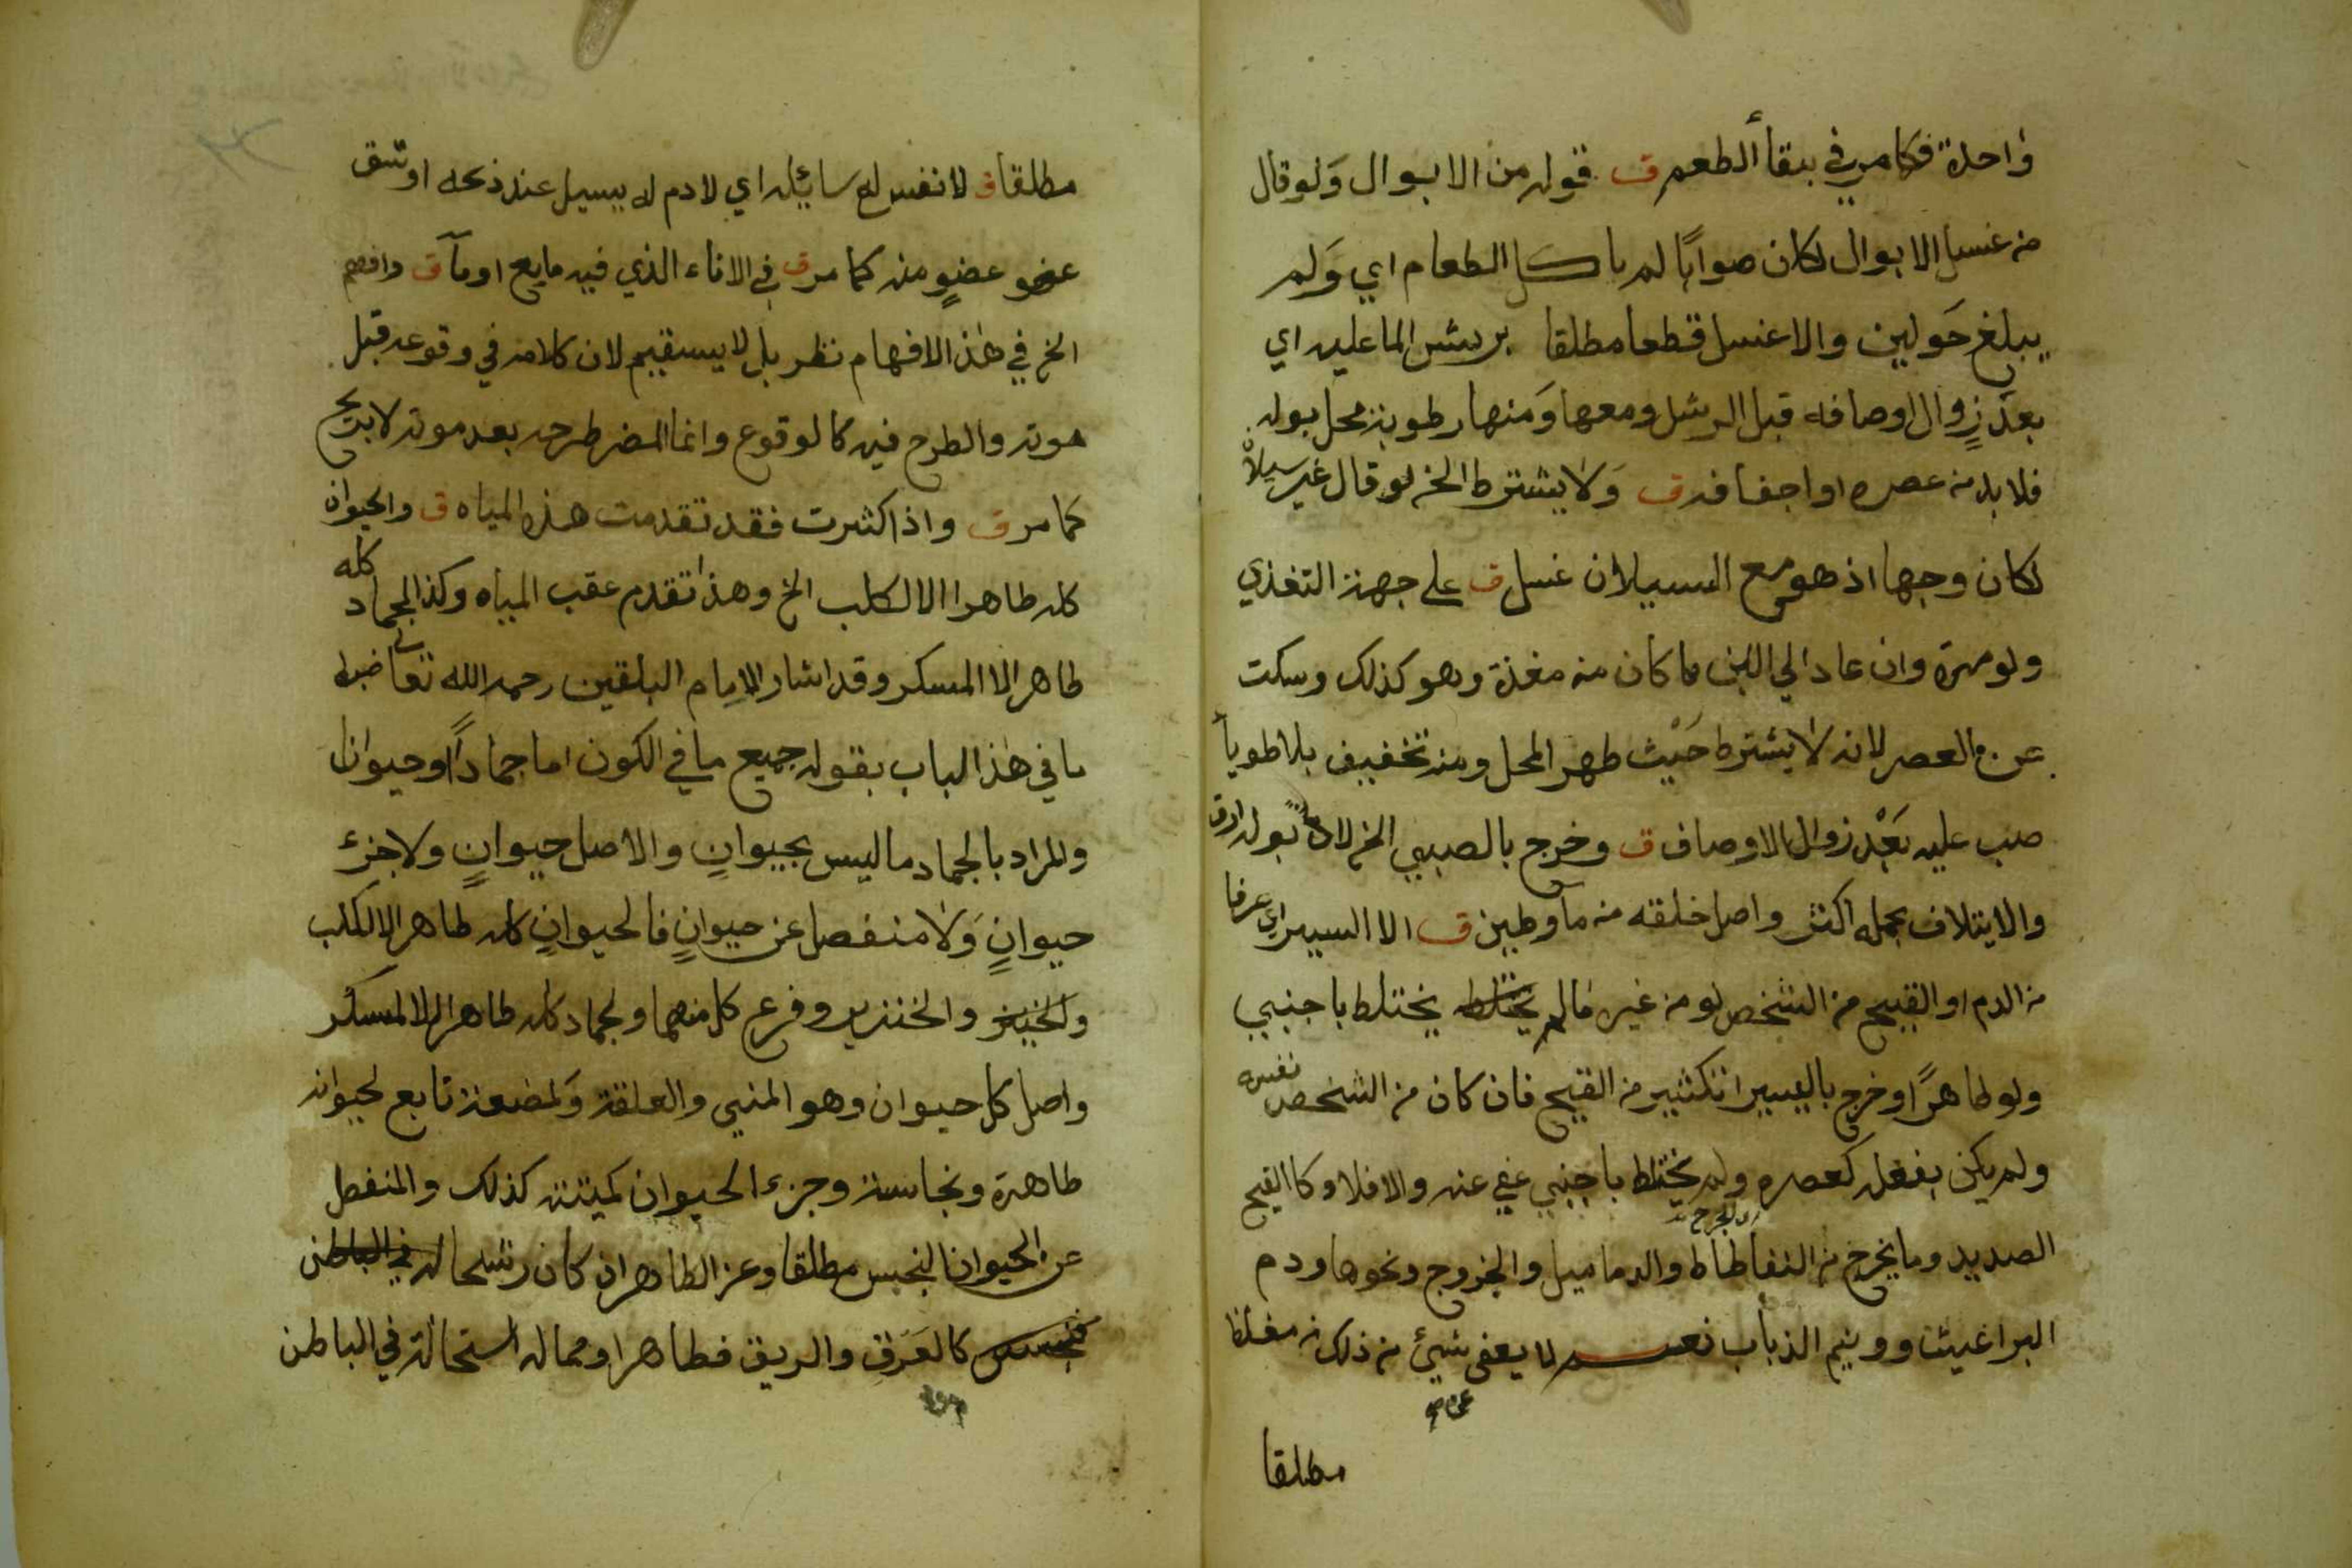 واحدة فكامر في بقأ الطعم ق قوله من الابوال وَلو قال
من غسل الابوال لكان صوابًا لم ياكل الطعام اي وَلم
يبلغ حَولين والاغسل قطعا مطلقا برش الما عليه اي
بعدَ زوال اوصافه قبل الرش ومعها وَمنها رطوبة محل بوله
فلا بد من عصره او اجفافه ق وَلا يشترط الخ لو قال غير سيلاً
لكان وجها اذ هو مع السيلان غسل ق على جهة التغذي
ولو مرة وان عاد الي اللبن ما كان منه مغذة وهو كذلك وسكت
عن العصر لانه لا يشترط حَيْث طهر المحل ومنه تخفيف بلا طوياً
صب عليه بَعْد زوال الاوصاف ق وخرج بالصبي الخ لان بولها ارق
والايتلاف بحمله اكثر واصل خلقه من ما وطين ق الا اليسير اي عرفا
من الدم او القيح من الشخص لو من غيره مالم يختلط يختلط باجنبي
ولو طاهرًا وخرج باليسير الكثير من القيح فان كان من الشخص نفسه
ولم يكن بفعله كعصره ولم يختلط باجنبي عفي عنه والا فلا وكا القيح
الصديد وما يخرج من النفاطاط والدماميل والجروج ونحوها ودم
البراغيث وونيم الذباب نعم لا يعفى شيئ من ذلك من مغلظ
مطلقا
مطلقا ق لا نفس له سائيله اي لا دم له يسيل عند ذبحه او شق
عضو عضوٍ منه كما مر ق في الاناء الذي فيه مايع او مآ ق وافهم
الخ في هذ الافهام نظر بل لا يستقيم لان كلامه في وقوعه قبل
موته والطرح فيه كا لوقوع وانما المضر طرحه بعد موته لا بريح
كما مر ق واذا كثرت فقد تقدمت هذه المياه ق والحيوان
كله طاهرا الا الكلب الخ وهذا تقدم عقب المياه وكذ الجماد كله
طاهر الا المسكر وقد اشار الامِام البلقين رحمه الله تعالى ضبط
ما في هذ الباب بقوله جميع ما في الكون اما جماداً او حيوانا
والمراد بالجماد ما ليس بحيوانٍ والاصل حيوانٍ ولا جزء
حيوانٍ وَلا منفصل عن حيوانٍ فالحيوانٍ كله طاهر الا الكلب
والخنزير وفرع كل منهما ولجماد كله طاهر الا المسكر
واصل كل حيوان وهو المني والعلقة وَلمضغة تابع لحيوانه
طاهرة ونجاسة وجزء الحيوان كميتته كذلك والمنفصل
عن الحيوان النجس مطلقا وعن الطاهر ان كان رشحا له في الباطن
فنجس كالعَرَق والريق فطاهر او مماله استحالة في الباطن